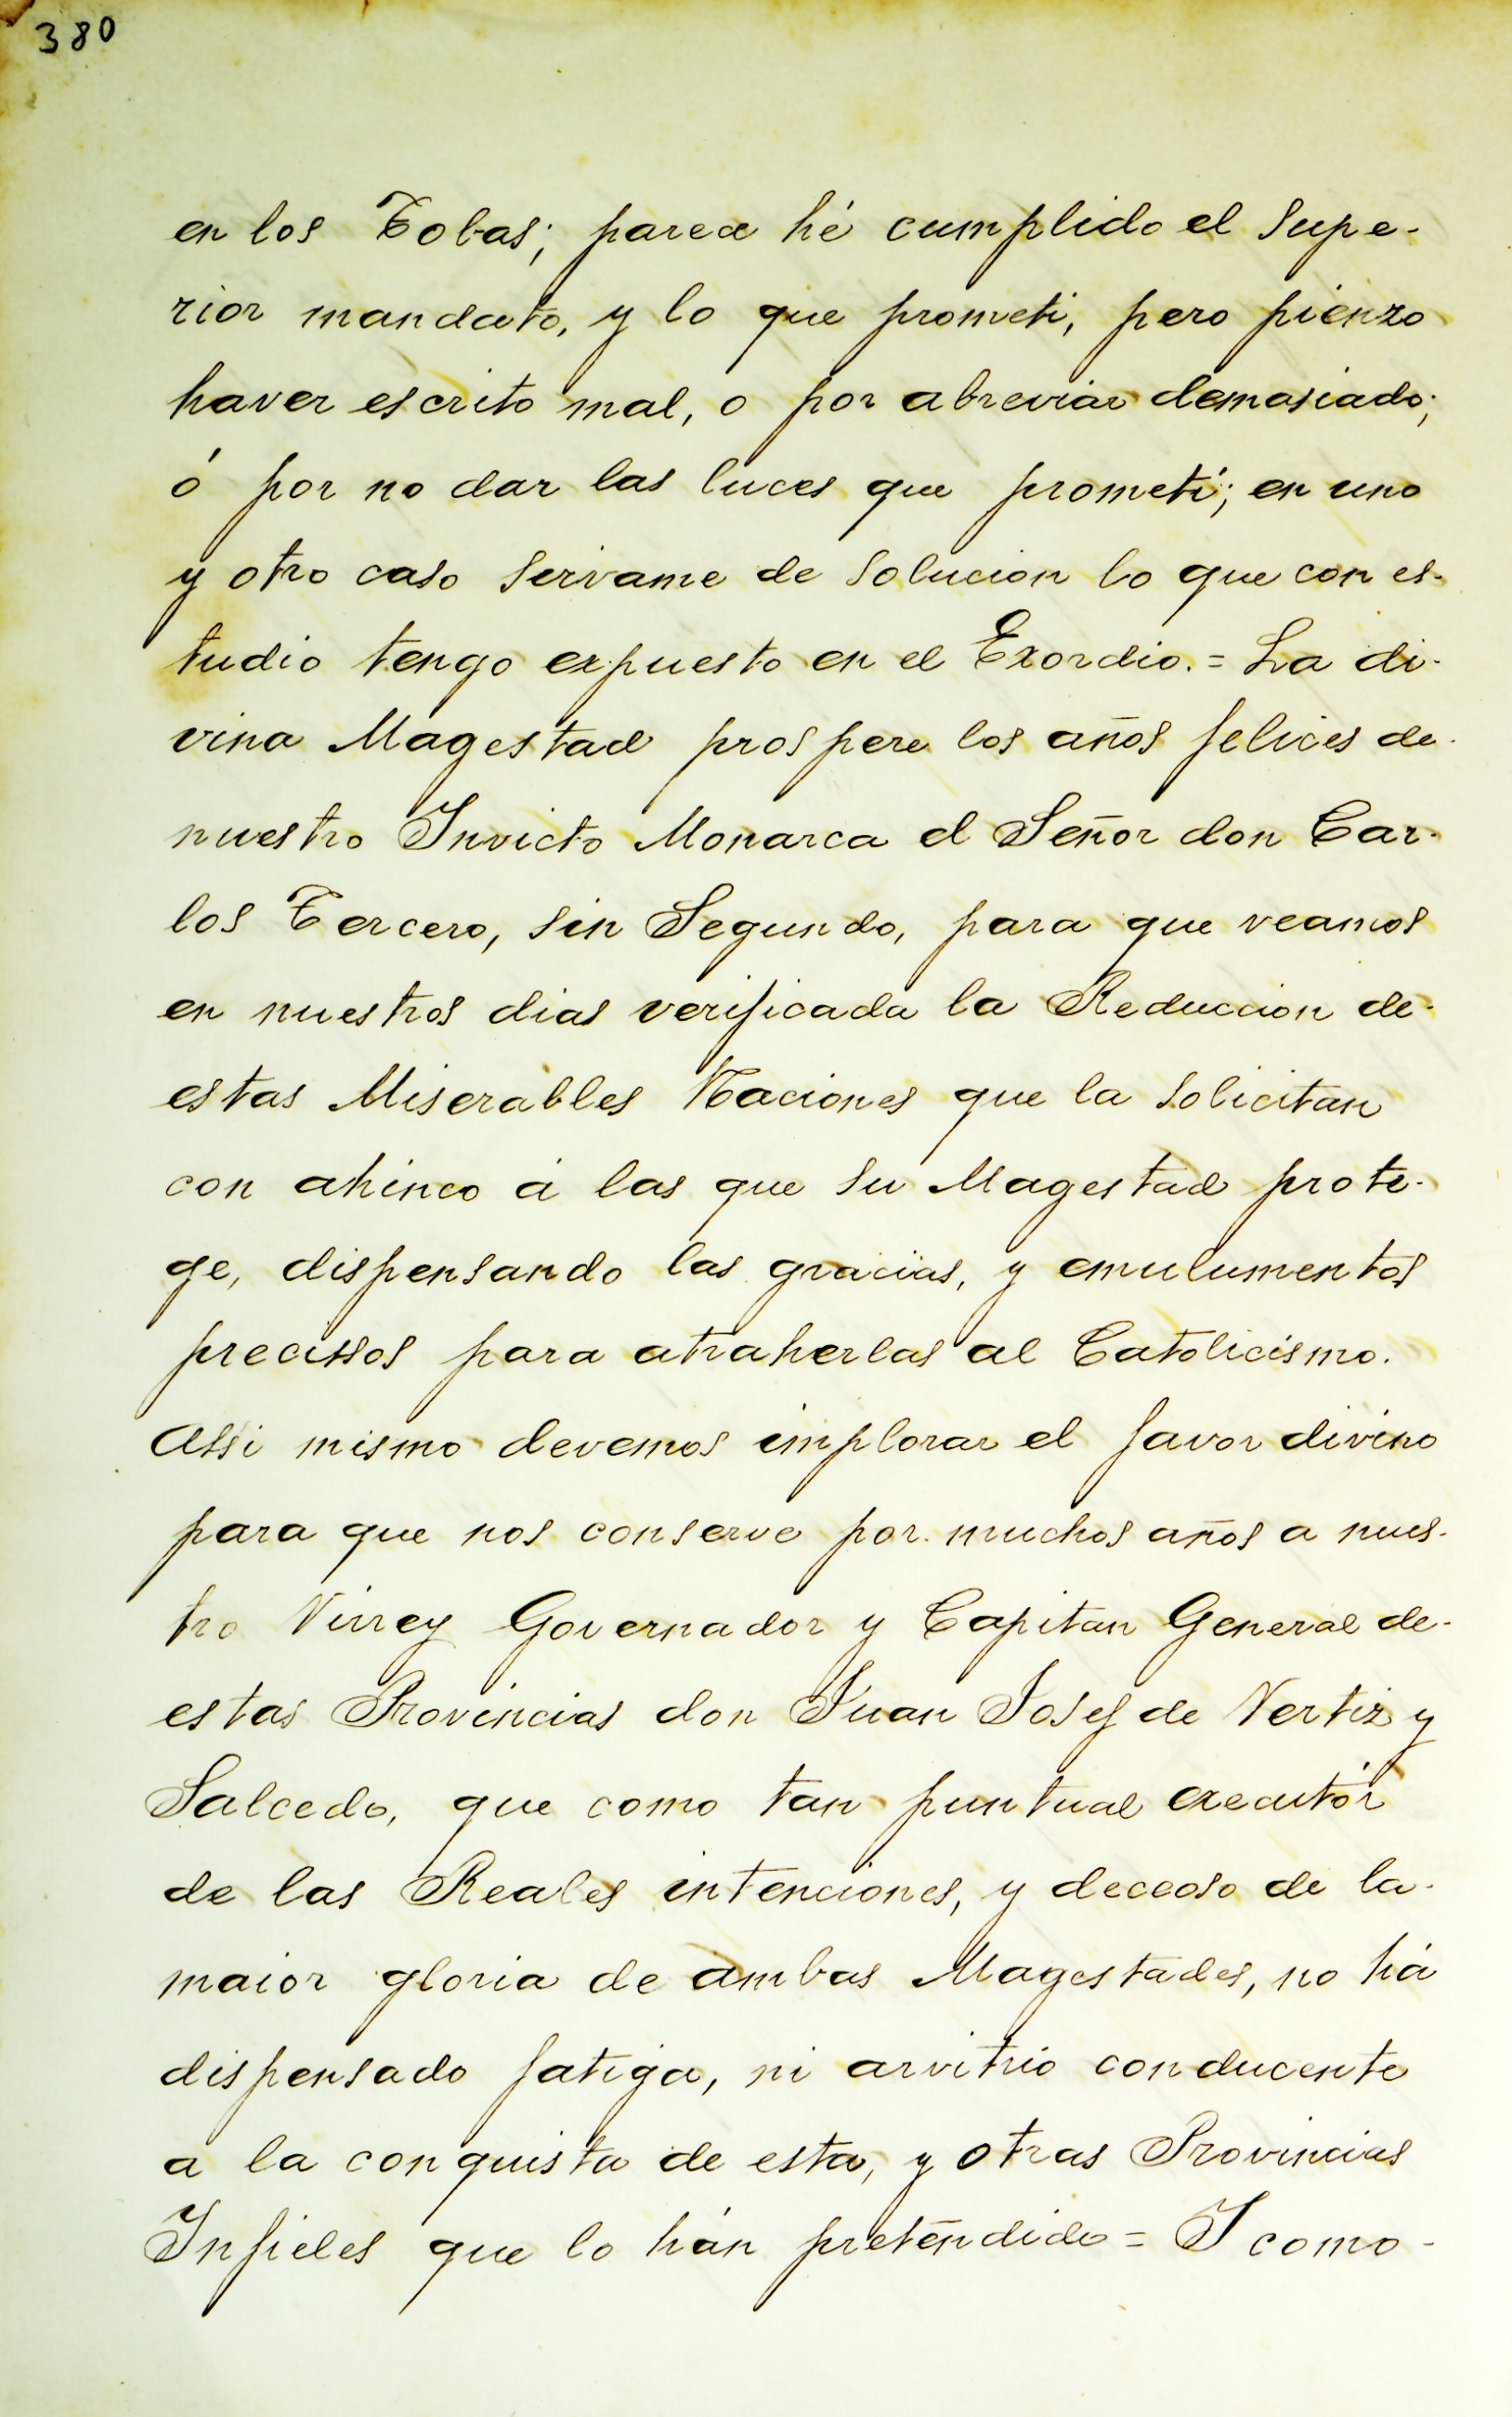 380
en los Tobas; parece hé cumplido el supe-
rior mandato, y lo que prometi, pero pienzo
haver escrito mal, o por abreviar demasiado;
ó por no dar las luces que prometí; en uno
y otro caso servame de solucion lo que con es-
tudio tengo expuesto en el Exordio. = La di-
vina Magestad prospere los años felices de-
nuestro Invicto Monarca el Señor don Car-
los Tercero, sin Segundo, para que veamos
en nuestros dias verificada la Reduccion de-
estas Miserables Naciones que la solicitan
con ahinco á las que su Magestad prote-
ge, dispensando las gracias, y emulumentos
precissos para atraherlas al Catolicismo.
Assi mismo devemos implorar el favor divino
para que nos conserve por muchos años a nues-
tro Virrey Governador y Capitan General de-
estas Provincias don Juan Josef de Vertiz y
Salcedo, que como tan puntual executór
de las Reales intenciones, y deceoso de la-
maior gloria de ambas Magestades, no há
dispensado fatiga, ni arvitrio conducente
a la conquista de esta, y otras Provincias
Infieles que lo hán preténdido = I como-